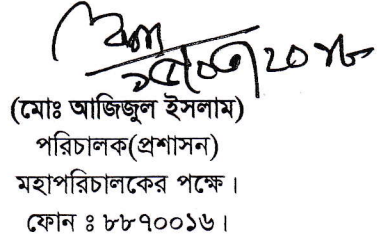 (মোঃ আজিজুল ইসলাম)
পরিচালক(প্রশাসন)
মহাপরিচালকের পক্ষে।
ফোন ঃ ৮৮৭০০১৬।